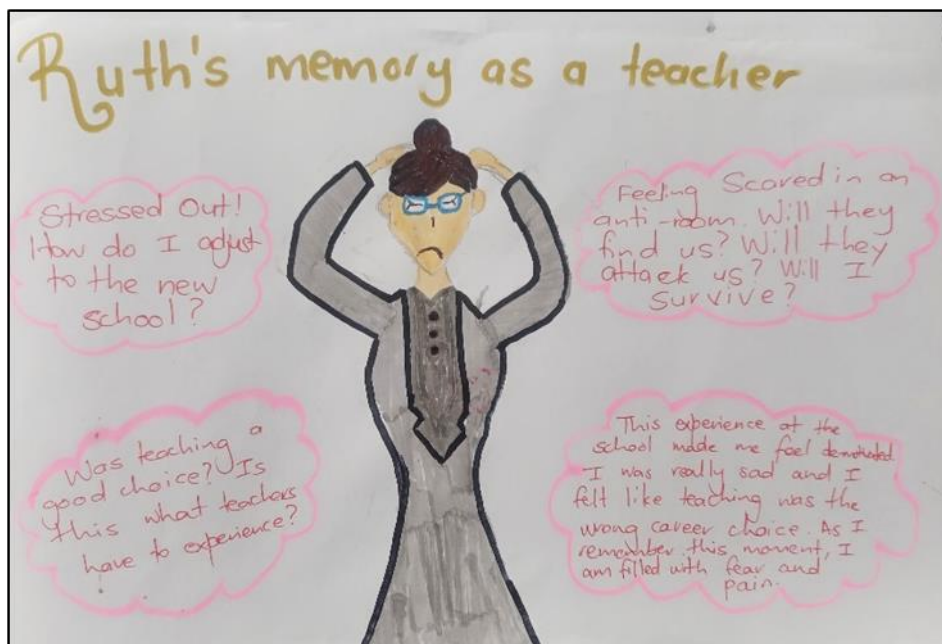 Ruth's memory as a teacher
Stressed Out!
How do I adjust
to the new
school?
Feeling Scared in an
anti-room. Will they
find us? Will they
attack us? Will I
survive?
Was teaching a
good choice? Is
this what teachers
have to experience?
This experience at the
school made me feel demotivated
I was really sad and I
felt like teaching was the
wrong career choice. As I
remember this moment, I
am filled with fear and
pain.